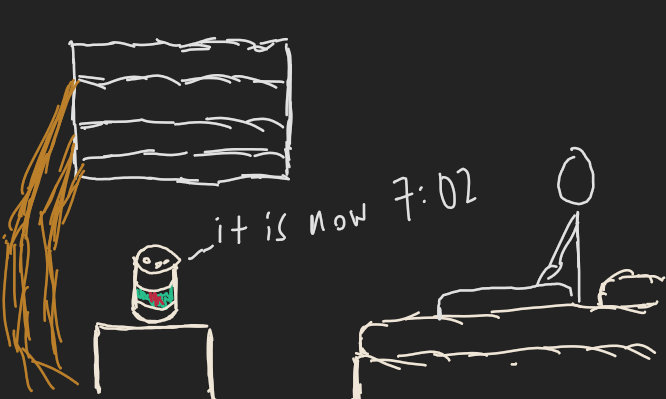 it is now 7:02